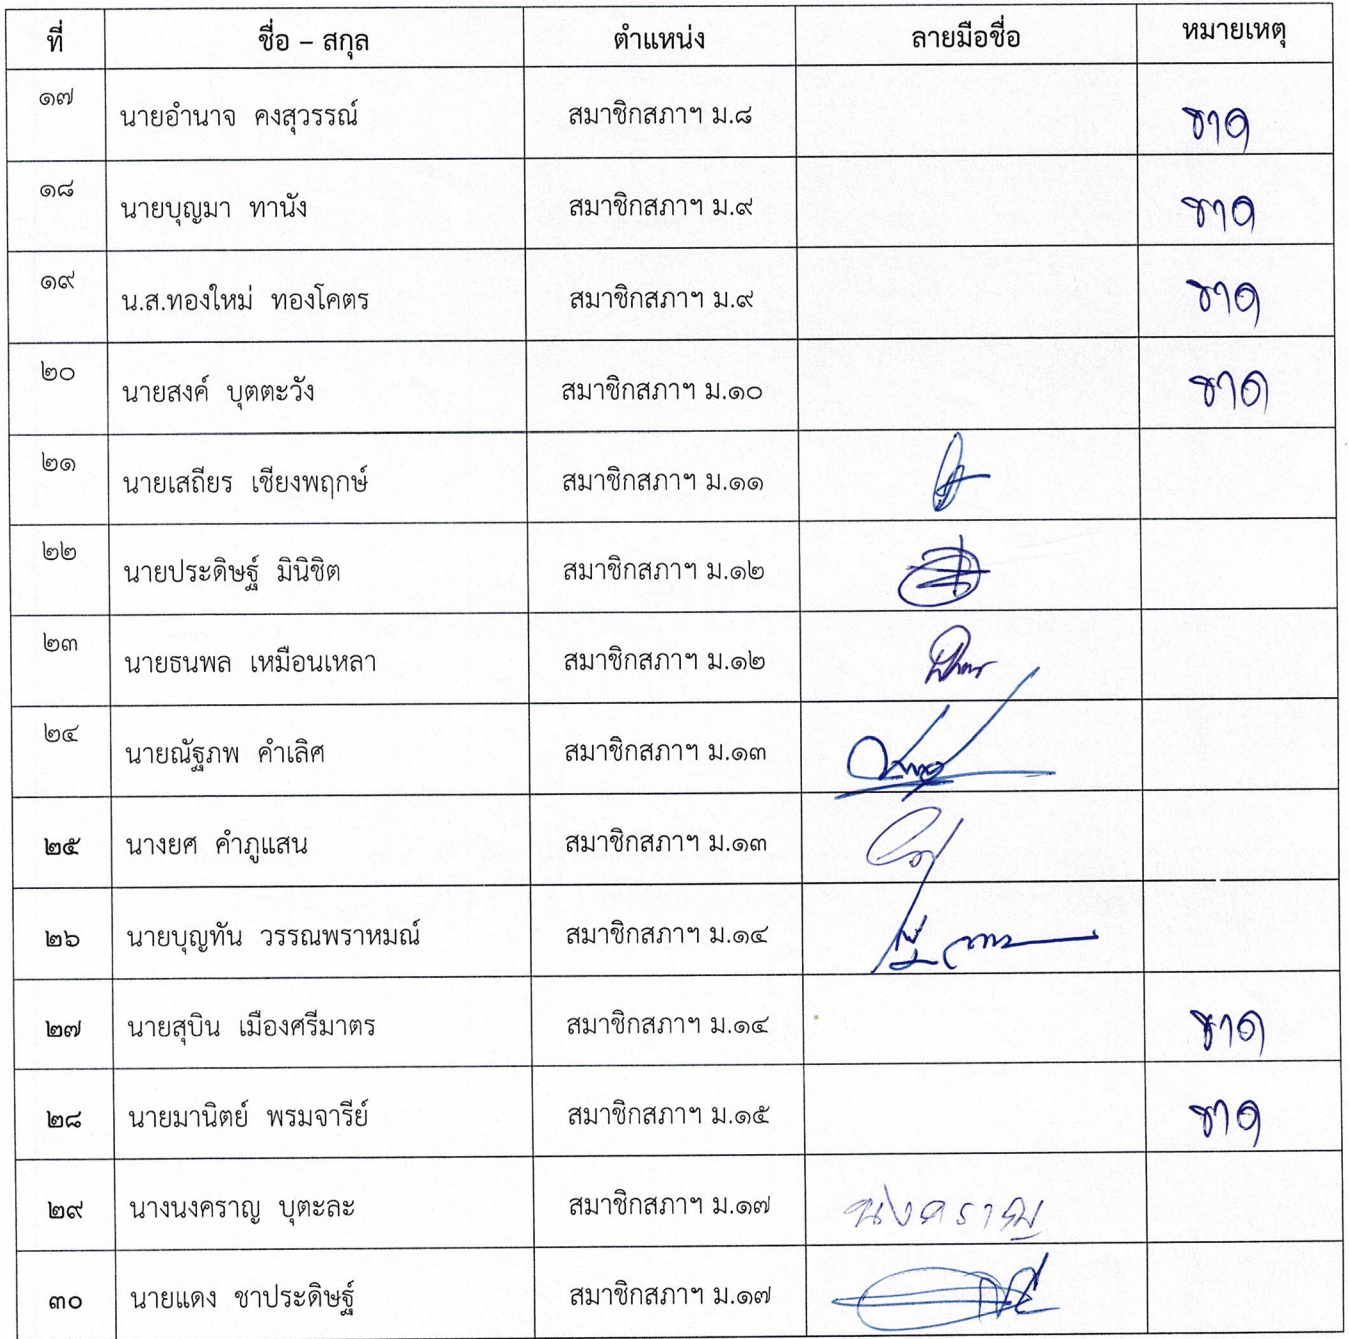 ที่ ชื่อ – สกุล ตำแหน่ง ลายมือชื่อ หมายเหตุ
๑๗ นายอำนาจ คงสุวรรณ์ สมาชิกสภาฯ ม.๘ ขาด
๑๘ นายบุญมา ทานัง สมาชิกสภาฯ ม.๙ ขาด
๑๙ น.ส.ทองใหม่ ทองโคตร สมาชิกสภาฯ ม.๙ ขาด
๒๐ นายสงค์ บุตตะวัง สมาชิกสภาฯ ม.๑๐ ขาด
๒๑ นายเสถียร เชียงพฤกษ์ สมาชิกสภาฯ ม.๑๑
๒๒ นายประดิษฐ์ มินิชิต สมาชิกสภาฯ ม.๑๒
๒๓ นายธนพล เหมือนเหลา สมาชิกสภาฯ ม.๑๒
๒๔ นายณัฐภพ คำเลิศ สมาชิกสภาฯ ม.๑๓
๒๕ นางยศ คำภูแสน สมาชิกสภาฯ ม.๑๓
๒๖ นายบุญทัน วรรณพราหมณ์ สมาชิกสภาฯ ม.๑๔
๒๗ นายสุบิน เมืองศรีมาตร สมาชิกสภาฯ ม.๑๔ ขาด
๒๘ นายมานิตย์ พรมจารีย์ สมาชิกสภาฯ ม.๑๕ ขาด
๒๙ นางนงคราญ บุตะละ สมาชิกสภาฯ ม.๑๗ นงคราญ
๓๐ นายแดง ชาประดิษฐ์ สมาชิกสภาฯ ม.๑๗